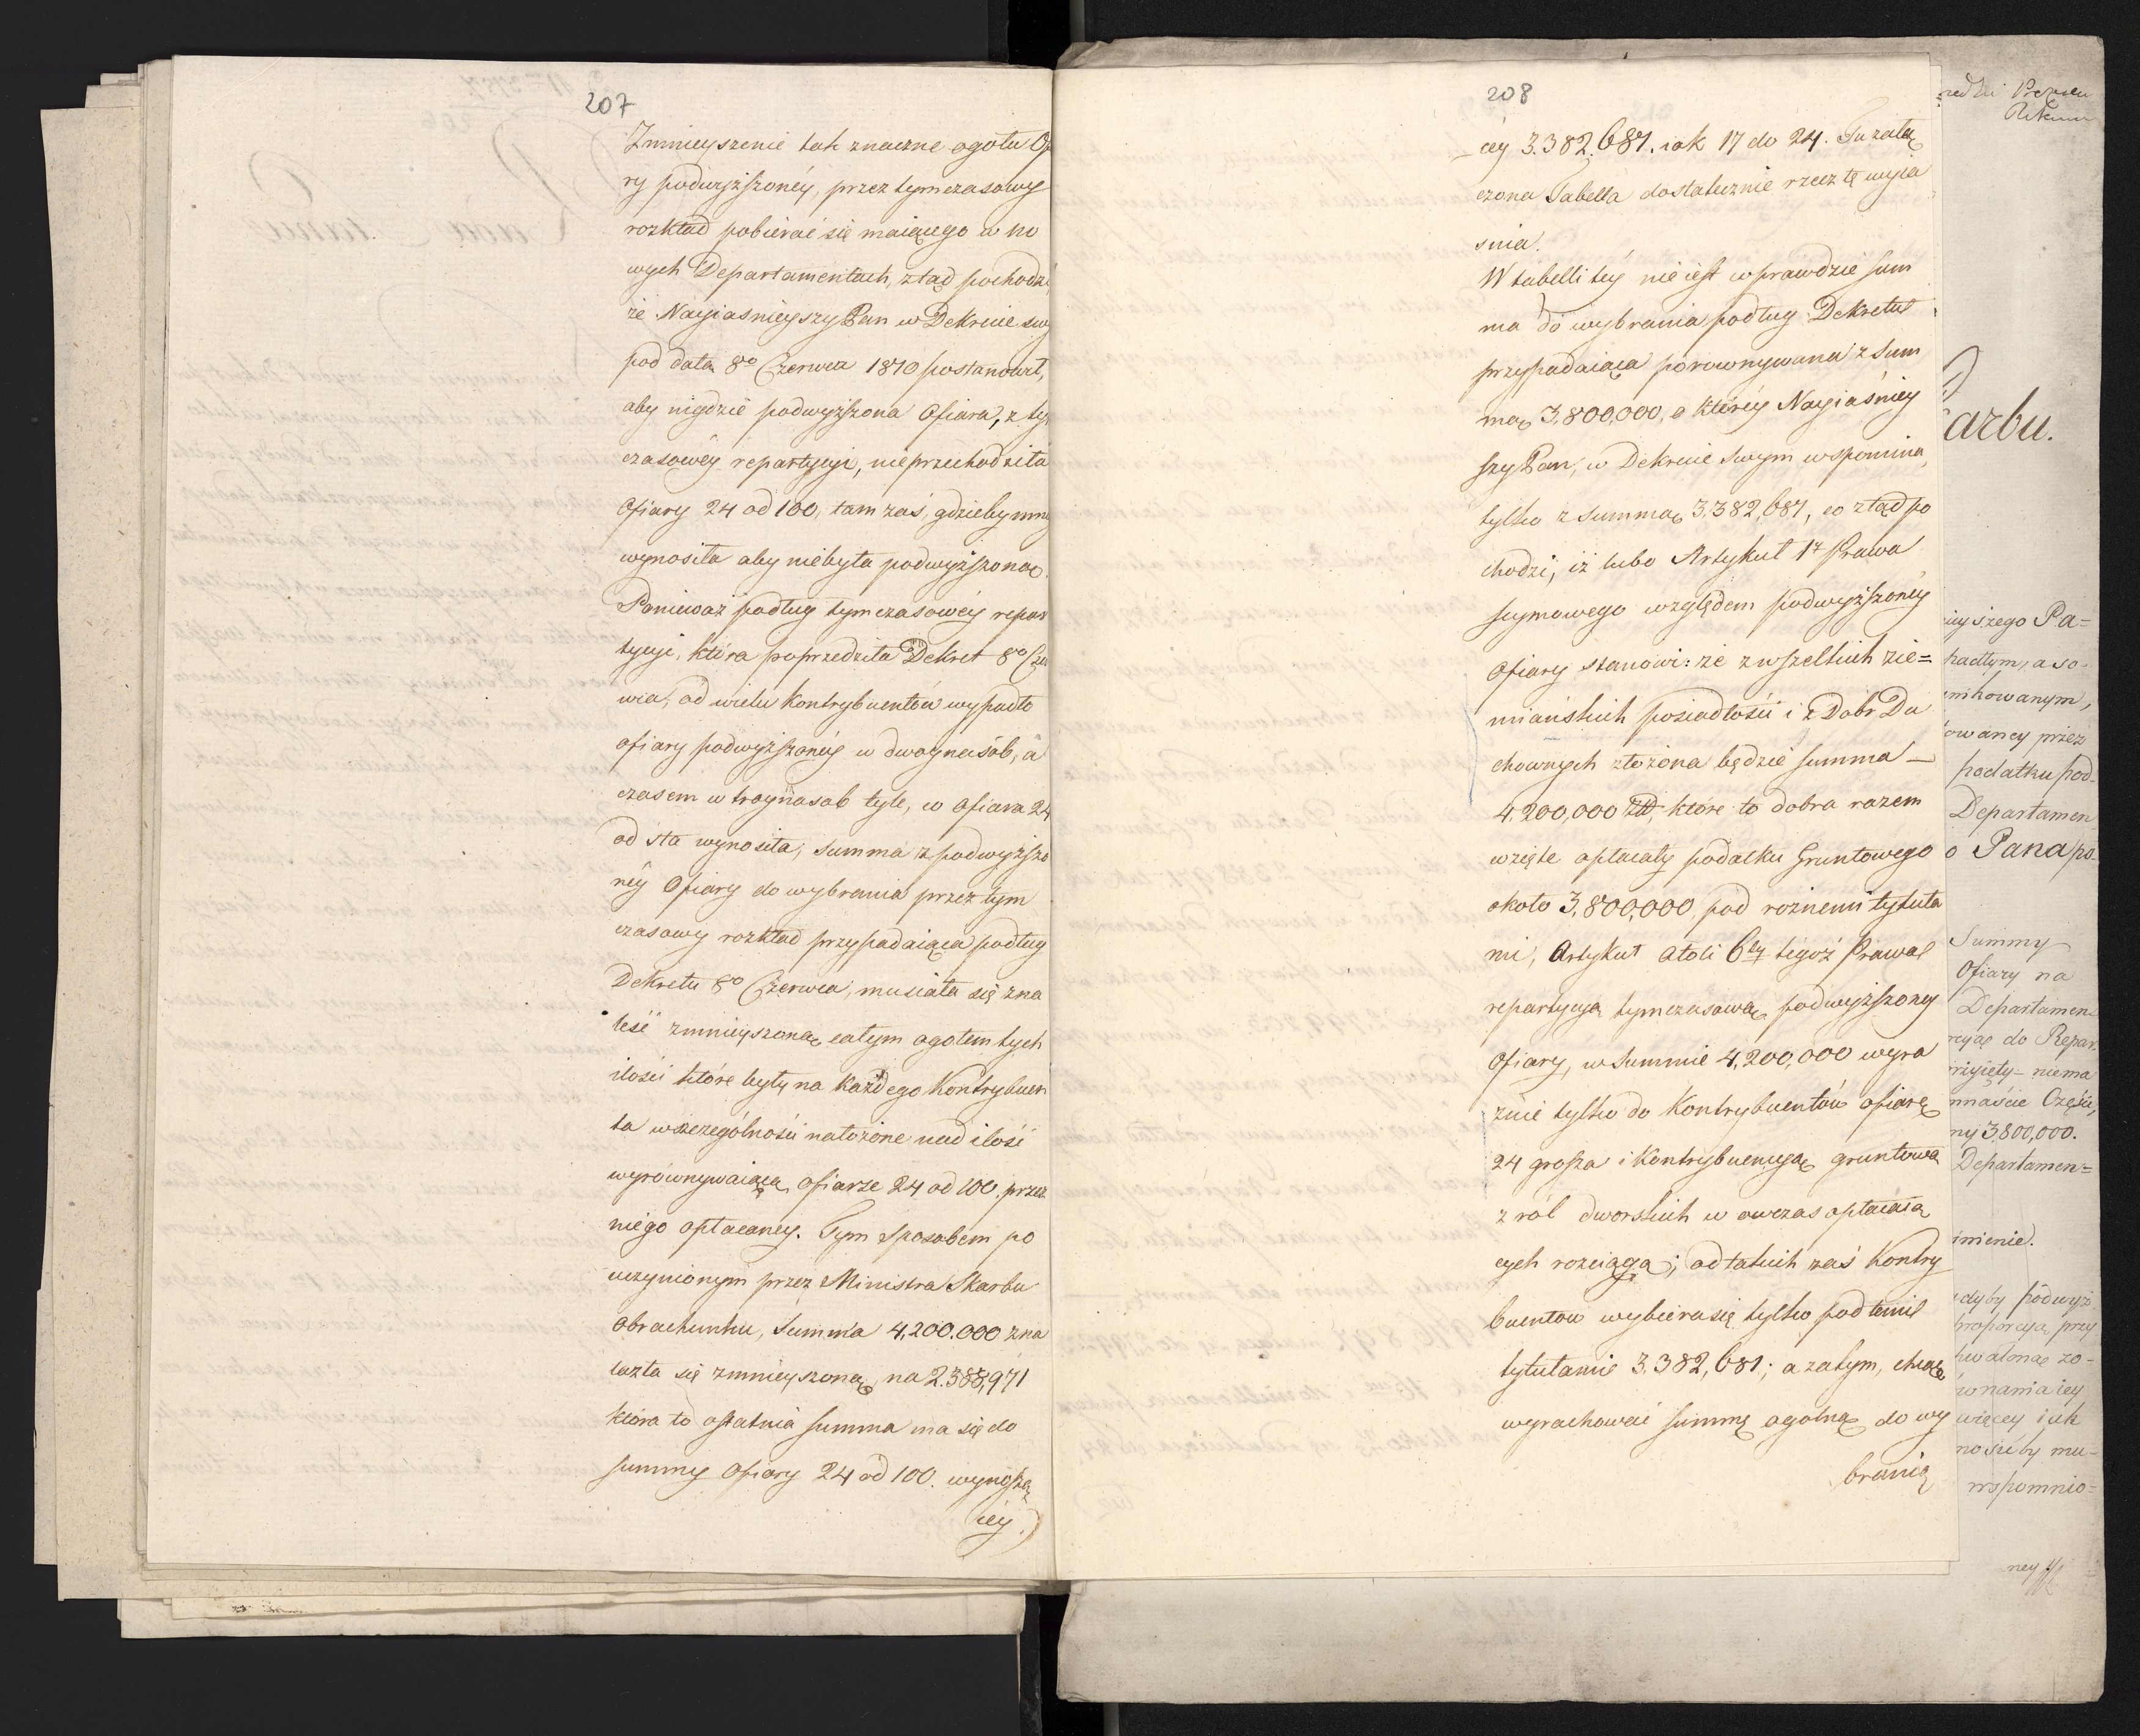 207
Zmnieyszenie tak znaczne ogołu O
ry podwyższonéy, przez tymczasowy
rozkład pobierać się maiącego w no
wych Departamentach, ztąd pochodzi
że Nayiaśnieyszy Pan w Dekrecie swy
pod datą 8go Czerwca 1810 postanowił,
aby nigdzie podwyższona Ofiara, z ty
czasowéy repartycyi, nieprzechodziła
Ofiary 24 od 100, tam zaś, gdzieby mniéy
wynosiła aby niebyła podwyższoną.
Ponieważ podług tymczasowéy repar
tycyi, która poprzedziła Dekret 8go Cze
wca, od wielu Kontrybuentów wypadło
ofiary podwyższonéy w dwoynasób, a
czasem w troynasob tyle, co Ofiara 24
od sta wynosiła, summa z podwyższo
néy Ofiary do wybrania przez tym
czasowy rozkład przypadaiąca podług
Dekretu 8go Czerwca, musiała się zna
leść zmnieyszoną całym ogołem tych
ilości które były na każdego Kontrybuen
ta wszczególności nałożone nad ilość
wyrównywaiącą Ofiarze 24 od 100. przez
niego opłacaney. Tym sposobem po
uczynionym przez Ministra Skarbu
Obrachunku, Summa 4,200.000 zna
lazła się zmnieyszoną na 2.388,971
która to ostatnia summa ma się do
summy Ofiary 24 od 100. wynoszą
céy.
208
céy 3.382.687. iak 17 do 24. Tu załą
czona Tabella dostatecznie rzecz tę wyia
snia.
W tabelli téy nie iest wprawdzie sum
ma do wybrania podług Dekretu
przypadaiąca porownywana z sum
mą 3,800,000, o któréy Nayiaśniey
szy Pan, w Dekrecie swym wspomina,
tylko z summą 3.382,687, co ztąd po
chodzi, iż lubo Artykuł 1y Prawa
seymowego względem podwyższonéy
Ofiary stanowi: że z wszelkich zie=
miańskich posiadłości i z Dobr Du
chownych złożona będzie summa —
4,200,000 Zł, które to dobra razem
wzięte opłacały podatku Gruntowego
około 3,800,000, pod rożnemi tytuła
mi, Artykuł atoli 6ty tegoż Prawa
repartycyą tymczasową podwyższony
Ofiary, w Summie 4,200,000 wyra
znie tylko do Kontrybuentów ofiarę
24 grosza i Kontrybucyą gruntową
z ról dworskich w owczas opłacaią
cych rozciąga; od takich zaś Kontry
buentow wybiera się tylko pod temi
tytułami 3.382,687; a zatym, chcąc
wyrachować summę ogolną do wy
brania
arbu.
uyszego Pa=
hadłym, a so-
unkowanym,
owaney przez
podatku pod-
Departamen
o Pana po-
Summy
Ofiary na
Departamen
cyą do Repar.
rzyięty - niema
nnaście Części,
ny 3,800,000.
Departamen=
inienie.
dyby podwyż
proporcyą, przy
hwaloną zo-
ównania iey
więcey iak
nosiłby mu-
wspomnio=
ney